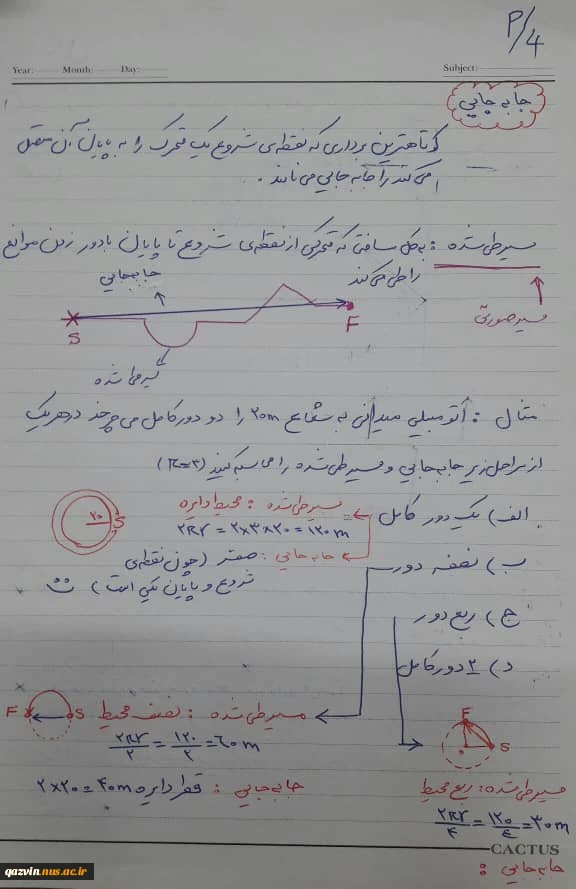 P/4
Year: Month: Day: Subject:
جابه جایی
کوتاهترین برداری که نقطه‌ی شروع یک متحرک را به پایان آن متصل
می کند را جابه جایی می نامند.
مسیر طی شده : به کل مسافتی که متحرکی از نقطه‌ی شروع تا پایان با دور زدن موانع
را طی می کند
جابه جایی
مسیر صورتی
S
F
مسیر طی شده
مثال : اتومبیلی میدانی به شعاع ۲۰m را دو دور کامل می چرخد در هر یک
از مراحل زیر جابه جایی و مسیر طی شده را محاسبه کنید (π=۳)
الف) یک دور کامل
مسیر طی شده : محیط دایره
۲πr = ۲×۳×۲۰ = ۱۲۰ m
۲۰
S
F
جابه جایی : صفر (چون نقطه‌ی
شروع و پایان یکی است)
ب) نصف دور
ج) ربع دور
د) ۲ دور کامل
F
S
مسیر طی شده : نصف محیط
۲πr/۲ = ۱۲۰/۲ = ۶۰ m
جابه جایی : قطر دایره ۲×۲۰=۴۰m
F
S
مسیر طی شده: ربع محیط
۲πr/۴ = ۱۲۰/۴ = ۳۰ m
CACTUS
جابه جایی :
qazvin.nus.ac.ir